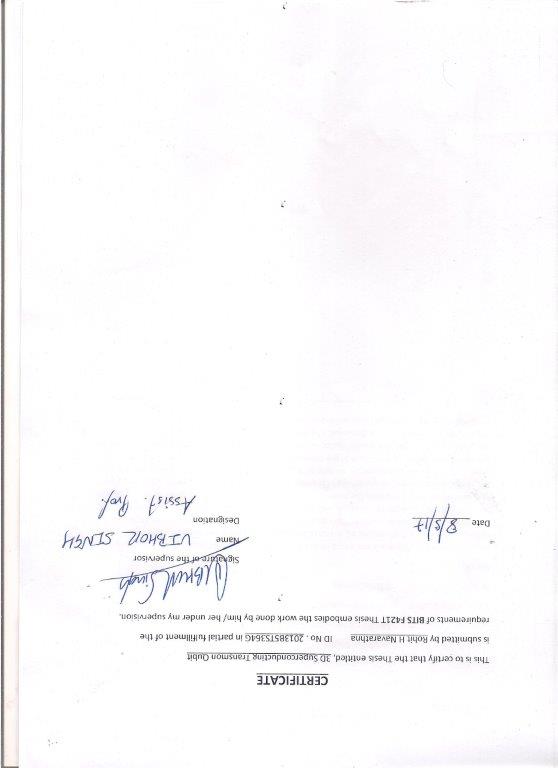 CERTIFICATE
This is to certify that the Thesis entitled, 3D Superconducting Transmon Qubit
is submitted by Rohit H Navarathna ID No . 2013B5TS364G in partial fulfillment of the
requirements of BITS F421T Thesis embodies the work done by him/ her under my supervision.
Vibhor Singh
Signature of the supervisor
Name VIBHOR SINGH
Date 8/5/17
Designation
Assist. Prof.